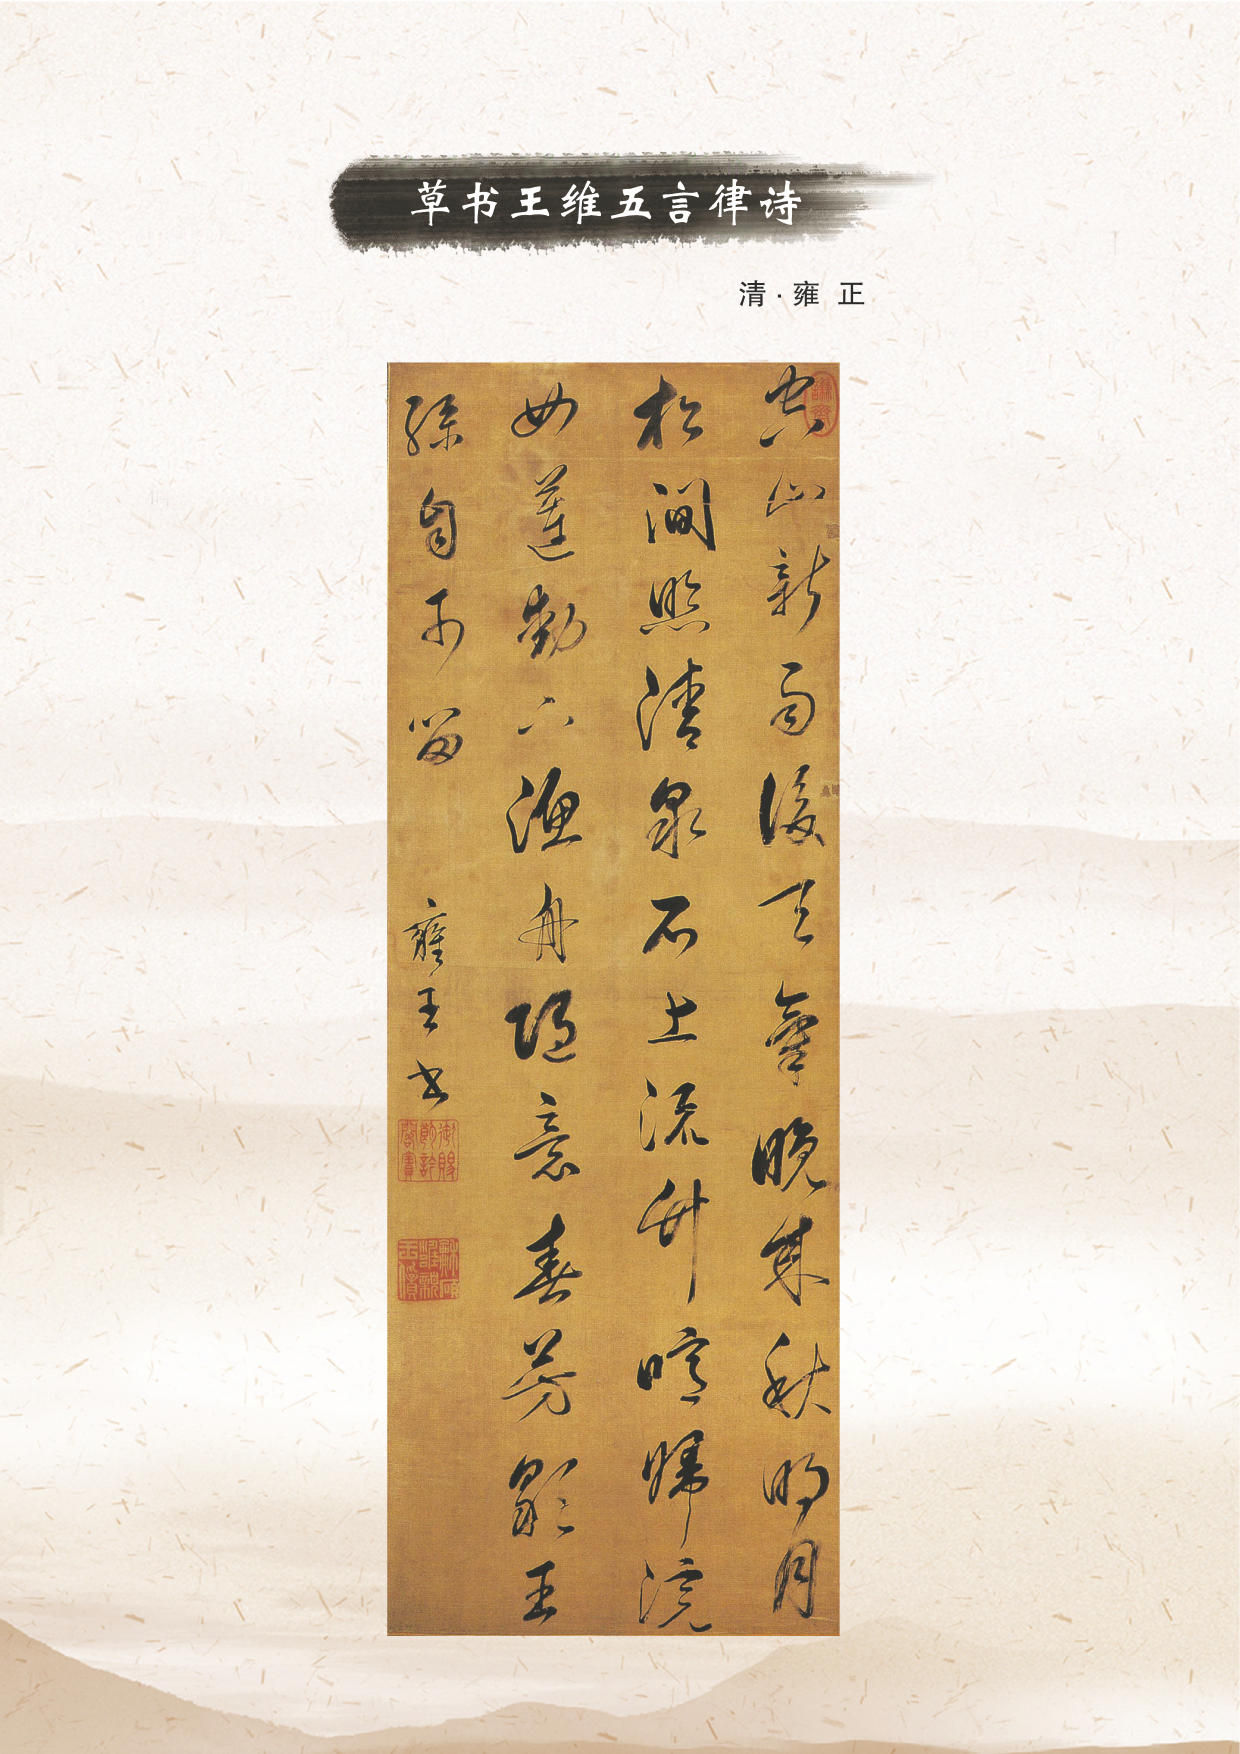 草书王维五言律诗
清·雍 正
空山新雨後天氣晚来秋明月
松澗照清泉石上流竹喧歸浣
女蓮動下漁舟隨意春芳歇王
孫自可留
雍王書